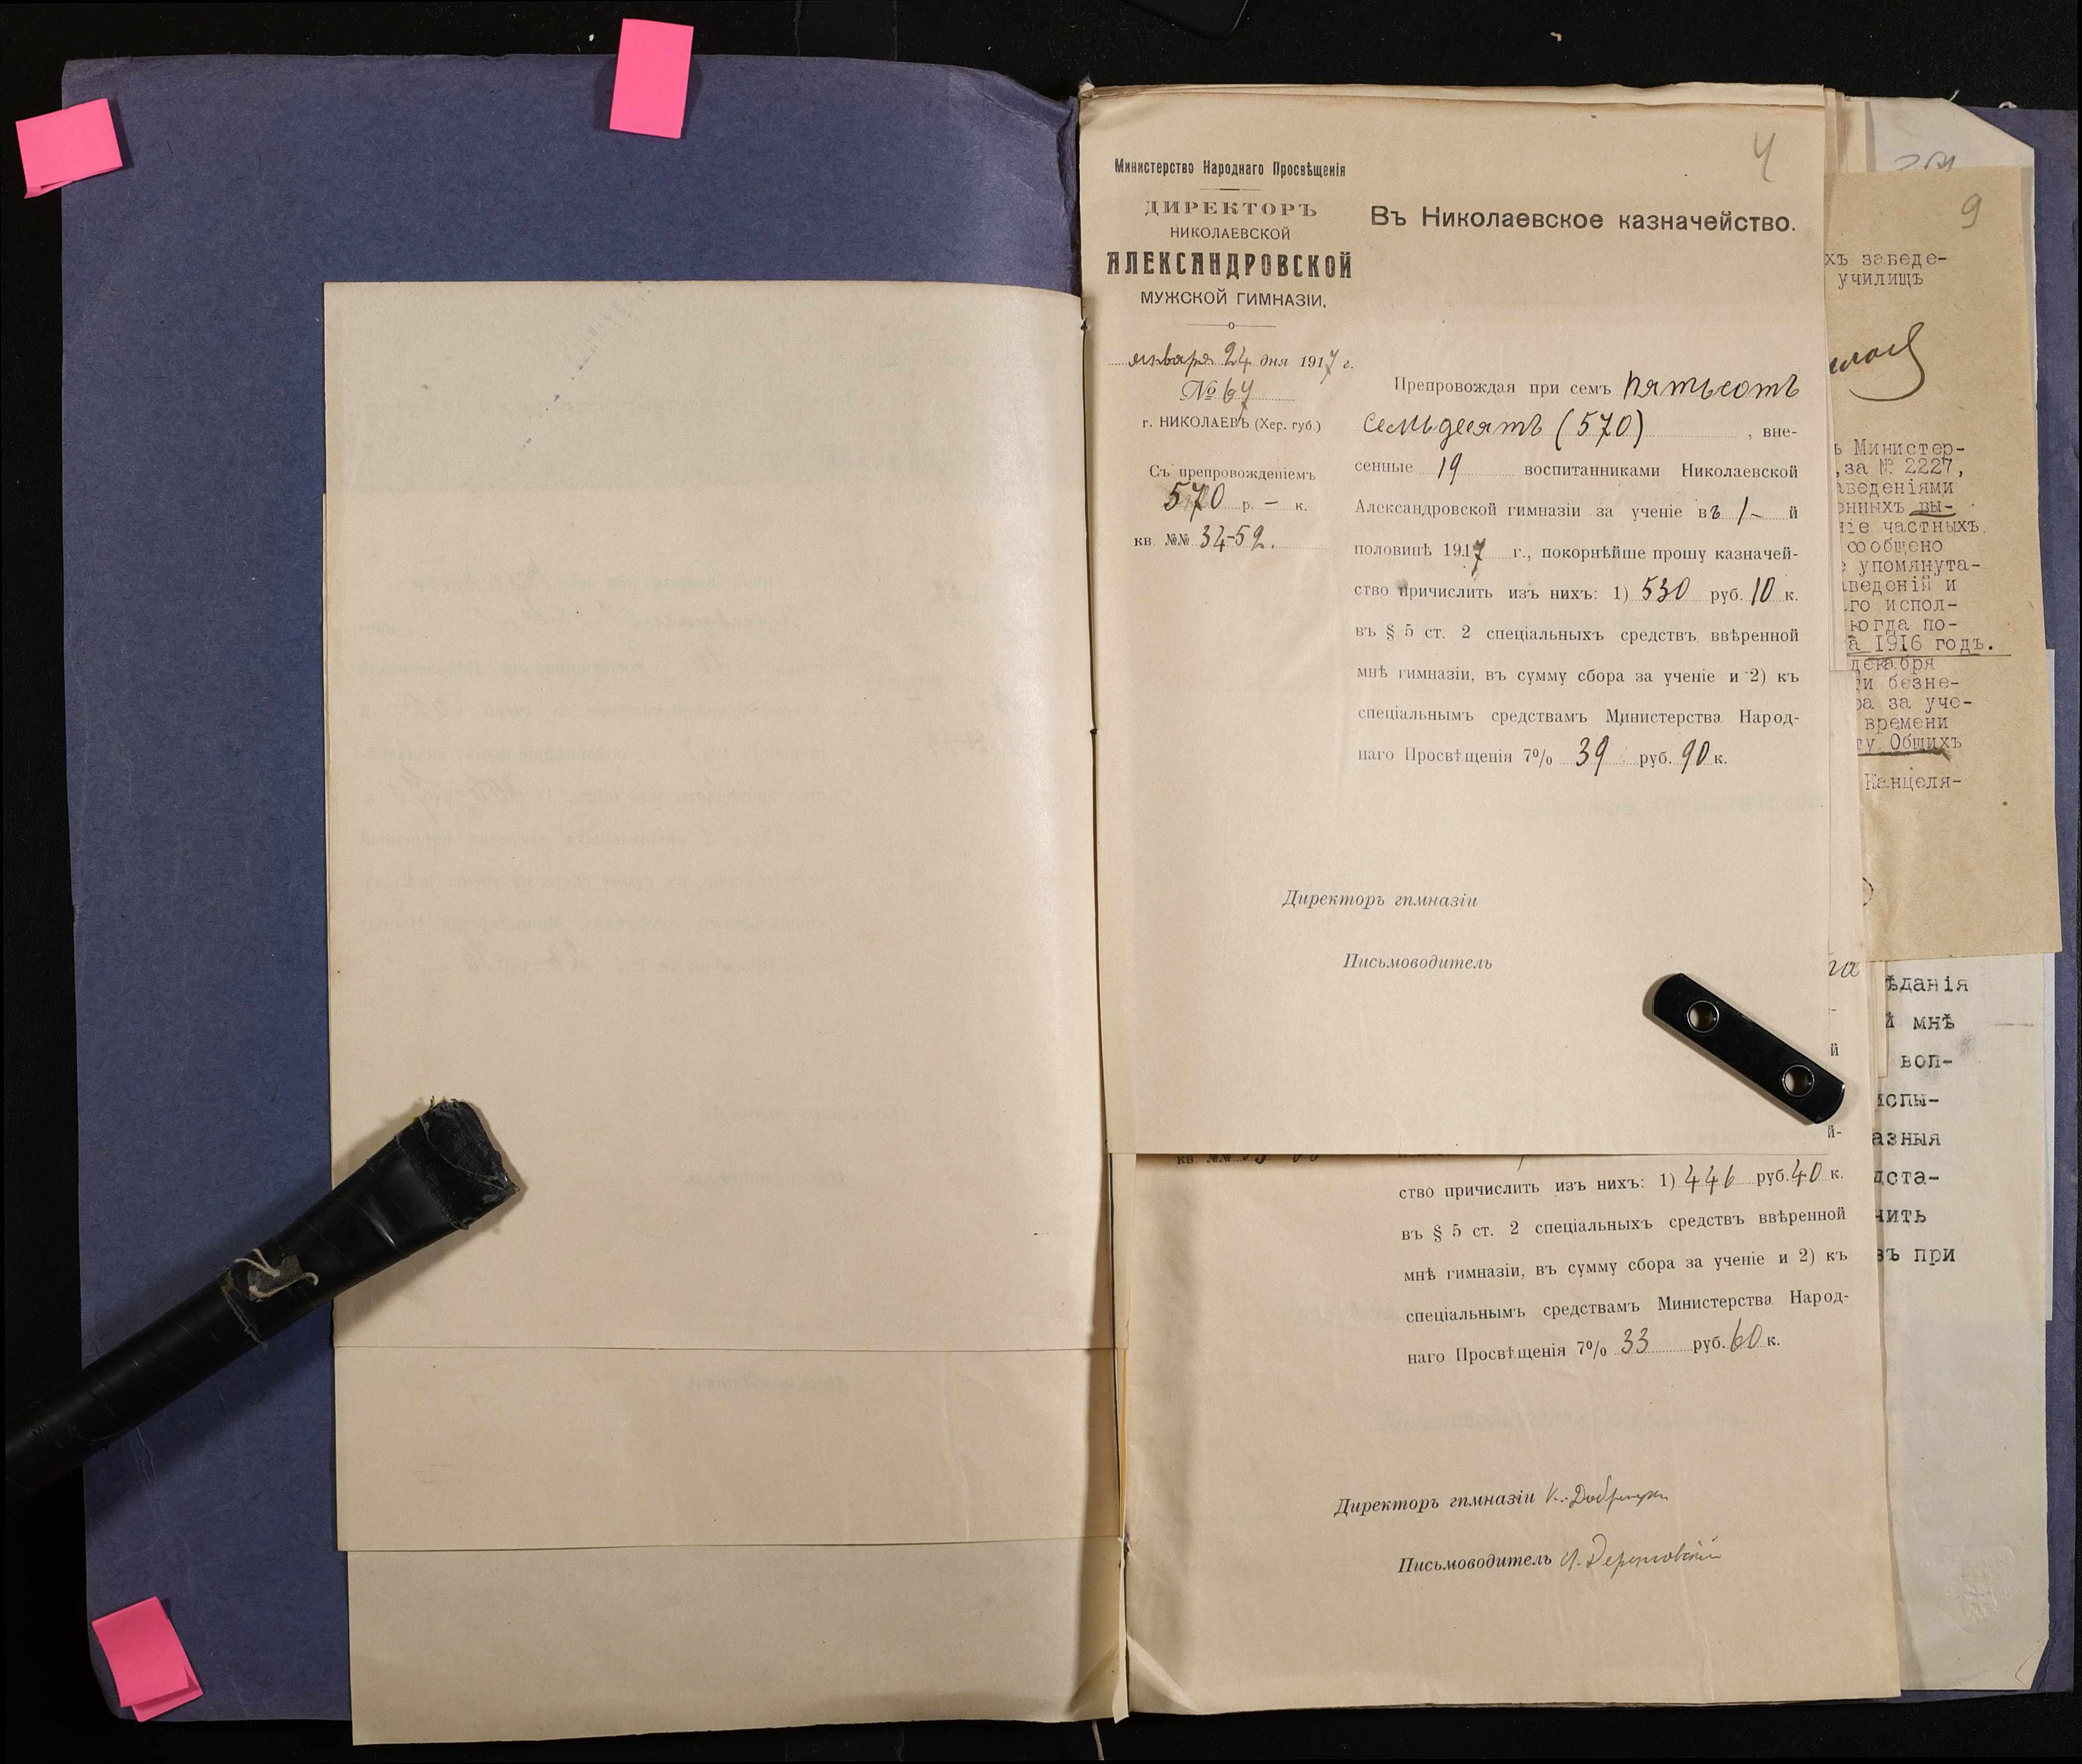 4
Министерство Народнаго Просвѣщенія
ДИРЕКТОРЪ
НИКОЛАЕВСКОЙ
АЛЕКСАНДРОВСКОЙ
МУЖСКОЙ ГИМНАЗІИ.
Въ Николаевское казначейство.
января 24 дня 1917 г.
№ 67
г. НИКОЛАЕВЪ (Хер. губ.)
Съ препровожденіемъ
570 р. — к.
кв. №№ 34-52.
Препровождая при семъ пятьсотъ
семьдесятъ (570) , вне-
сенные 19 воспитанниками Николаевской
Александровской гимназіи за ученіе въ 1-й
половинѣ 1917 г., покорнѣйше прошу казначей-
ство причислить изъ нихъ: 1) 530 руб. 10 к.
въ § 5 ст. 2 спеціальныхъ средствъ ввѣренной
мнѣ гимназіи, въ сумму сбора за ученіе и 2) къ
спеціальнымъ средствамъ Министерства Народ-
наго Просвѣщенія 7% 39 руб. 90 к.
Директоръ гимназіи
Письмоводитель
кв. №№
ство причислить изъ нихъ: 1) 446 руб. 40 к.
въ § 5 ст. 2 спеціальныхъ средствъ ввѣренной
мнѣ гимназіи, въ сумму сбора за ученіе и 2) къ
спеціальнымъ средствамъ Министерства Народ-
наго Просвѣщенія 7% 33 руб. 60 к.
Директоръ гимназіи
Письмоводитель
9
хъ заведе-
училищъ
ъ Министер-
,за № 2227,
аведеніями
енныхъ вы-
ніе частныхъ
сообщено
е упомянута-
аведеній и
го испол-
когда по-
а 1916 годъ.
декабря
и безне-
ра за уче-
времени
ту Общихъ
Канцеля-
ѣданія
й мнѣ
воп-
испы-
азныя
дста-
чить
въ при